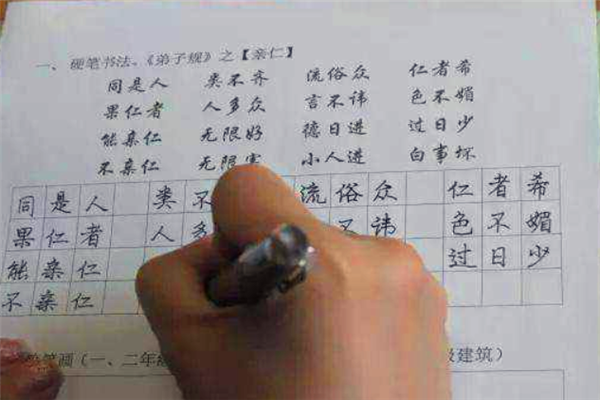 一、硬笔书法、《弟子规》之【亲仁】
同是人 类不齐 流俗众 仁者希
果仁者 人多众 言不讳 色不媚
能亲仁 无限好 德日进 过日少
不亲仁 无限害 小人进 百事坏
同是人 类不 流俗众 仁者希
果仁者 人多 不讳 色不媚
能亲仁 过日少
不亲仁
笔画（一、二年级 级建筑）